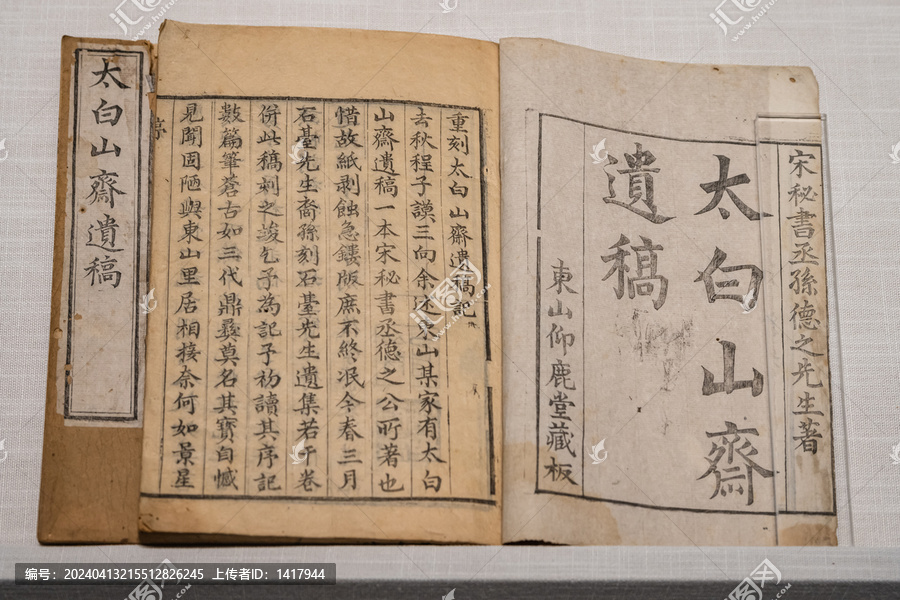 宋秘書丞孫德之先生著
太白山齋
遺稿
東山仰鹿堂藏板
重刻太白山齋遺稿記
去秋程子謨三向余述東山某家有太白
山齋遺稿一本宋秘書丞德之公所著也
惜故紙剥蝕急鏤版庶不終泯今春三月
石臺先生裔孫刻石臺先生遺集若干卷
併此稿刺之竣乞予為記予初讀其序記
數篇筆蒼古如三代鼎彝莫名其寶自憾
見聞固陋與東山里居相接奈何如景星
序
太白山齋遺稿
编号：20240413215512826245 上传者ID：1417944
汇图网
www.huitu.com